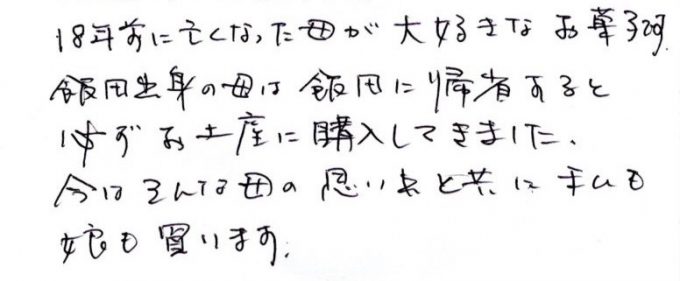 18年前に亡くなった母が大好きなお菓子です。
飯田出身の母は飯田に帰省すると
必ずお土産に購入してきました。
今はそんな母の思い出と共に私も
娘も買います。